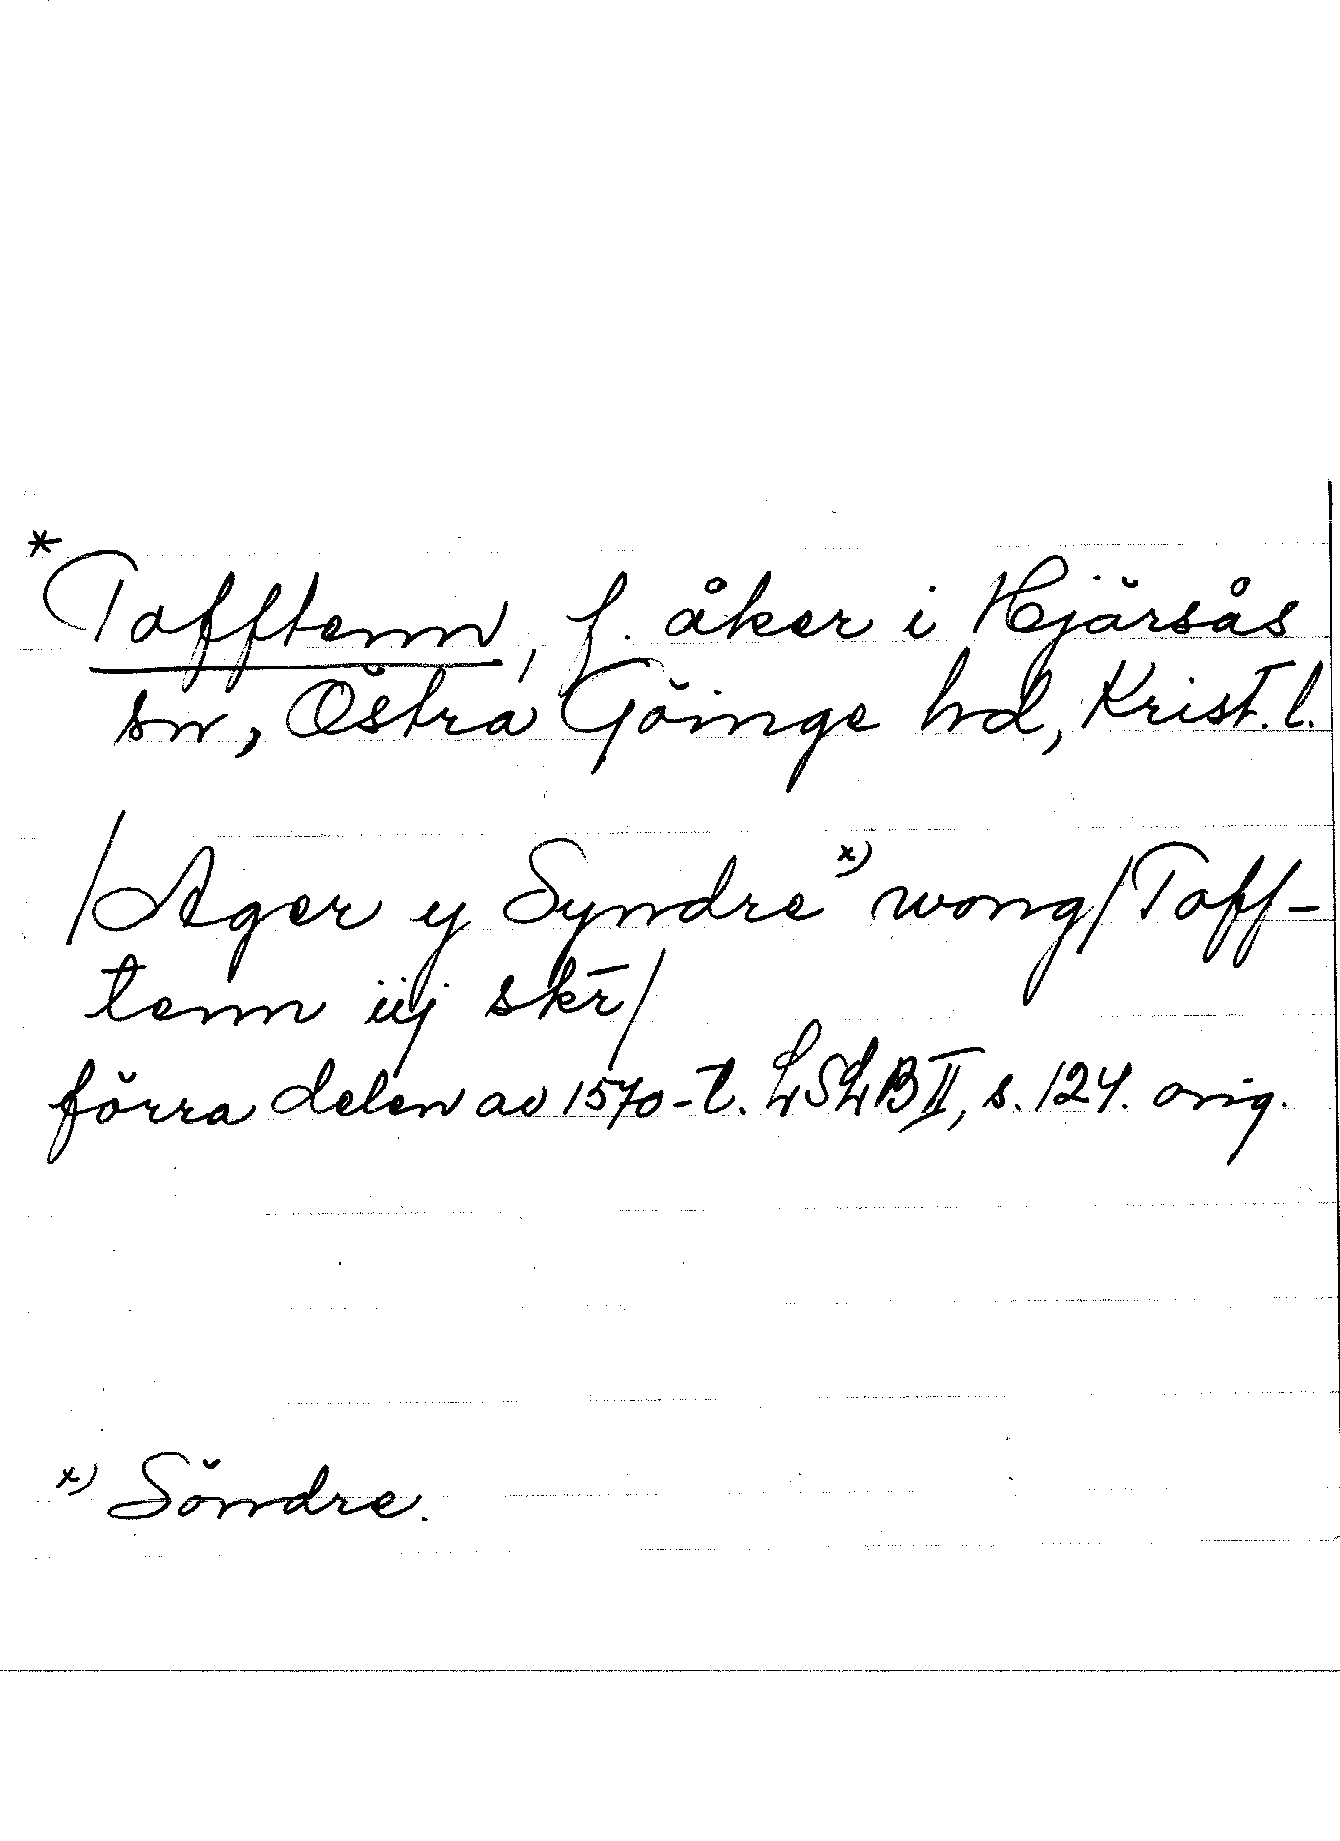 *Tofftenn, f. åker i Hjärsås
sn, Östra Göinge hd, Krist. l.
/Ager y Syndre x) wong/Toff-
tenn iij skr̄/
förra delen av 1570-t. LSLB II, s. 124. orig.
x) Söndre.